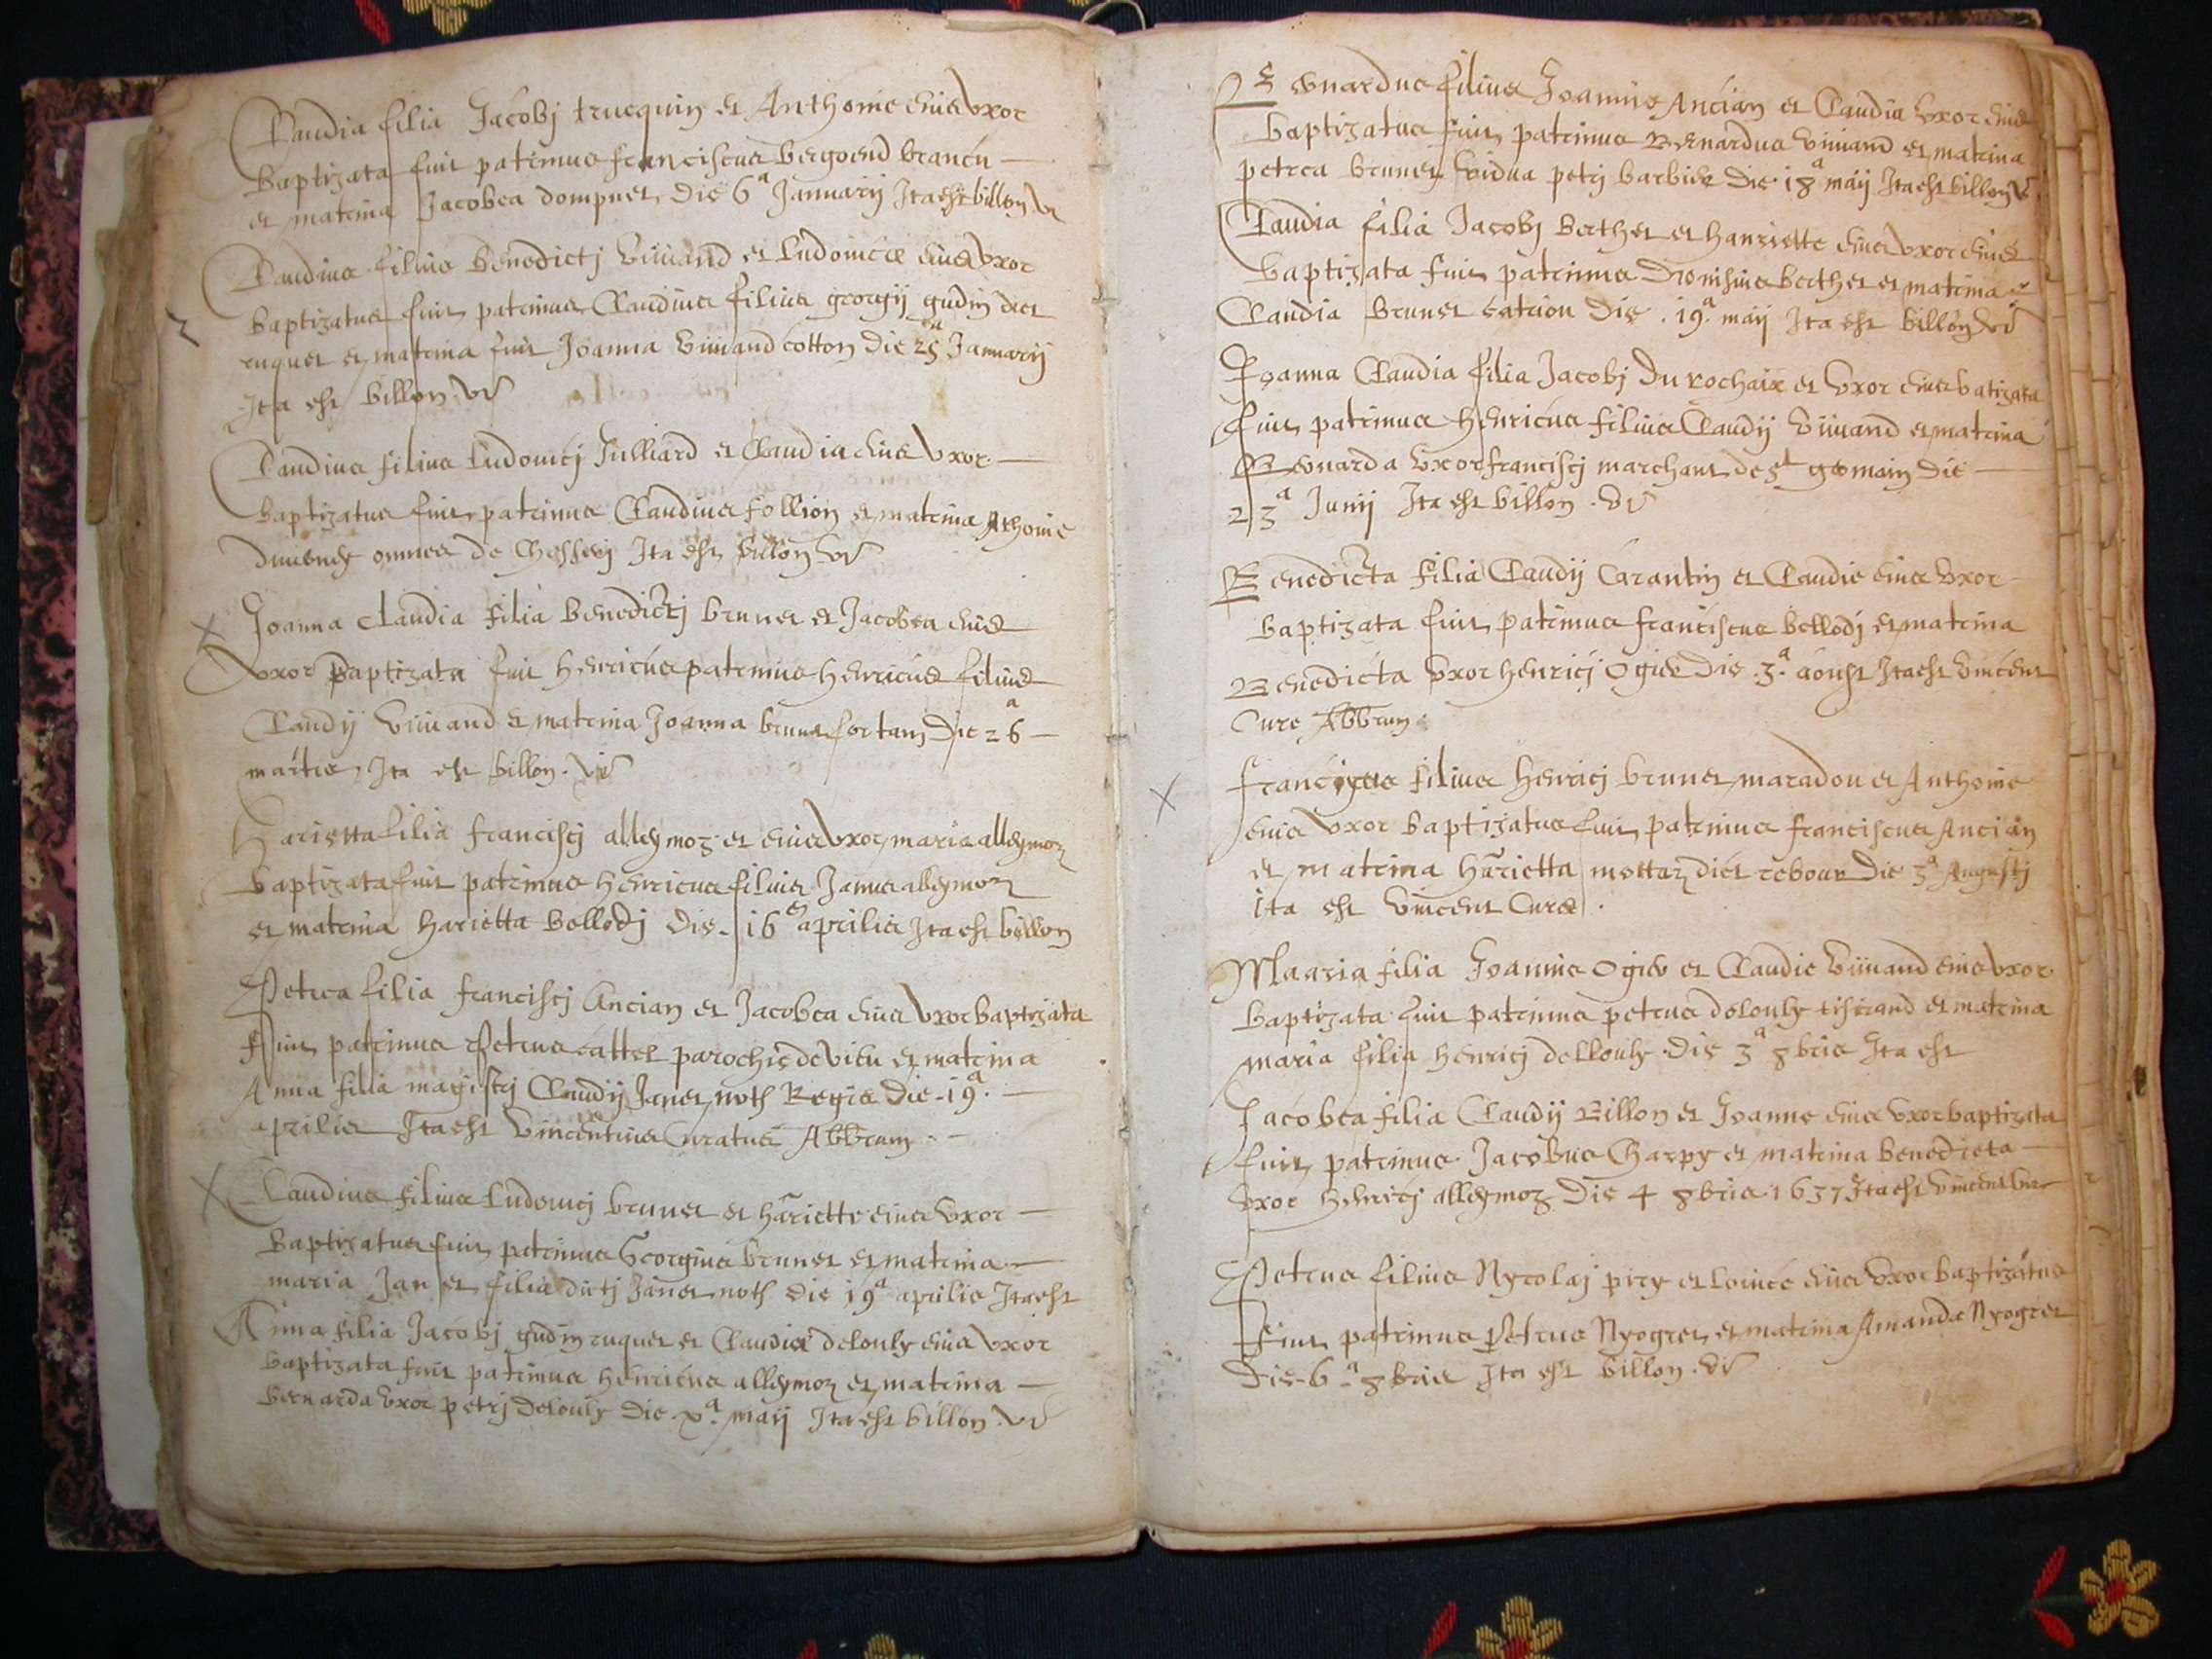 Claudia filia Jacobj trucquin et Anthonie eius uxor
baptizata fuit patrinus franciscus bergoend brancu
et matrina Jacobea dompner die 6a Januarij Ita est billon vr
Claudius filius benedictj Vuiuand et Ludouicæ eius uxor
baptizatus fuit patrinus Claudius filius georgij gudin dict
ruquet et matrina fuit Joanna Vuiuand cotton die 25a Januarij
Ita est billon vr
Claudius filius Ludouicj Julliard et Claudia eius uxor
baptizatus fuit patrinus Claudius follion et matrina Athonie
omnes de Ita est billon vr
Joanna claudia filia benedictj brunet et Jacobea eius
uxor baptizata fuit henricus patrinus henricus filius
Claudij Vuiuand et matrina Joanna brunet fortam die 26a
martis Ita est billon vr
Harietta filia franciscj alleymoz et eius uxor maria alleymoz
baptizata fuit patrinus henricus filius Janus alleymoz
et matrina harietta bellodj die 16 aprilis Ita est billon
Petrea filia franciscj Ancian et Jacobea eius uxor baptizata
fuit patrinus Petrus cattel parochie de vieu et matrina
Anna filia magistrj Claudij Janet noth Regis die 19a
aprilis Ita est Vincentius Curatus Abbram
Claudius filius Ludouicj brunet et hariette eius uxor
baptizatus fuit patrinus Georgius brunet et matrina
maria Janet filia dictj Janet noth die 19a aprilis Ita est
Anna filia Jacobj gudin ruquet et Claudia delouly eius uxor
baptizata fuit patrinus henricus alleymoz et matrina
bernarda uxor petrj delouly die xa maij Ita est billon vr
Bernardus filius Joannis Ancian et Claudia uxor eius
baptizatus fuit patrinus Bernardus Vuiuand et matrina
petrea brunet vidua petrj barbier die 18a maij Ita est billon vr
Claudia filia Jacobj berthet et hanriette eius uxor eius
baptizata fuit patrinus Dionisius berthet et matrina
Claudia brunet catrion die 19a maij Ita est billon vr
Joanna Claudia filia Jacobj du rochaix et uxor eius batizata
fuit patrinus henricus filius Claudij Vuiuand et matrina
Bernarda uxor franciscj marchant de st germain die
23a Junij Ita est billon vr
Benedicta filia Claudij Carantin et Claudie eius uxor
baptizata fuit patrinus franciscus bellodj et matrina
Benedicta uxor henricj Ogier die 3a aoust Ita est Vincent
Cure Abbram
franciscus filius henricj brunet maradon et Anthonie
eius uxor baptizatus fuit patrinus franciscus Ancian
et matrina harietta mottaz dict rebour die 3a Augustj
ita est Vincent Cure
Maaria filia Joannis Ogier et Claudie Vuiuand eius uxor
baptizata fuit patrinus petrus delouly tisserand et matrina
maria filia henricj dellouly die 3a 8bris Ita est
Jacobea filia Claudij Billon et Joanne eius uxor baptizata
fuit patrinus Jacobus Charpy et matrina benedicta
uxor henricj alleymoz die 4 8bris 1637 Ita est Vincent cure
Petrus filius Nycolaj piry et loince eius uxor baptizatus
fuit patrinus Petrus Nyogret et matrina Amanda Nyogret
die 6a 8bris Ita est billon vr